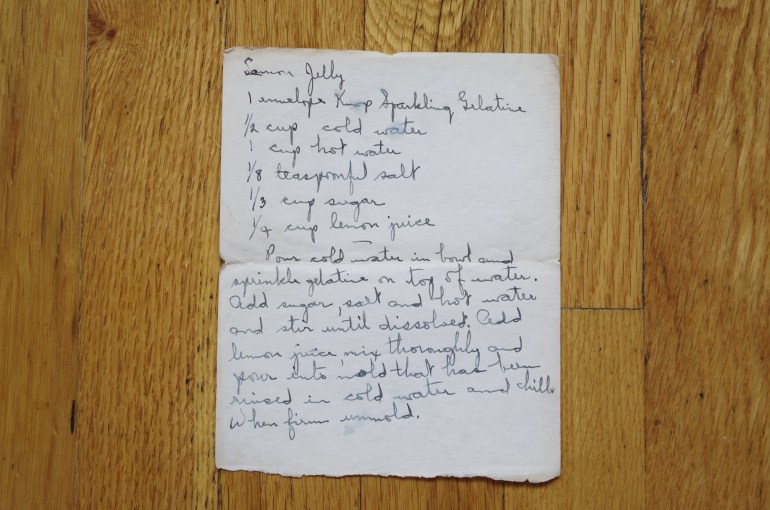 Lemon Jelly
1 envelope Knox Sparkling Gelatine
1/2 cup cold water
1 cup hot water
1/8 teaspoonful salt
1/3 cup sugar
1/4 cup lemon juice
Pour cold water in bowl and
sprinkle gelatine on top of water.
Add sugar, salt and hot water
and stir until dissolved. Add
lemon juice, mix thoroughly and
pour into mold that has been
rinsed in cold water and chill.
When firm unmold.